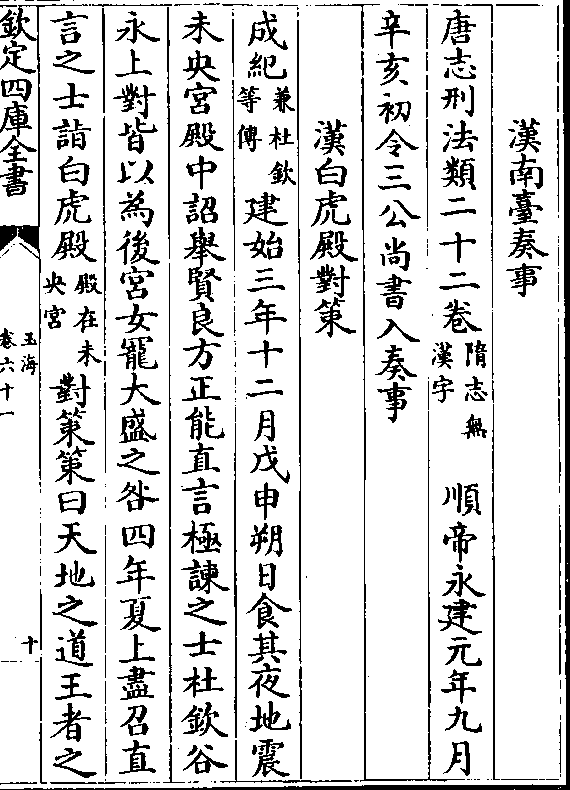 漢南臺奏事
唐志刑法類二十二卷隋志無漢字 順帝永建元年九月
辛亥初令三公尚書入奏事
漢白虎殿對策
成紀兼杜欽等傳建始三年十二月戊申朔日食其夜地震
未央宮殿中詔舉賢良方正能直言極諫之士杜欽谷
永上對皆以為後宮女寵大盛之咎四年夏上盡召直
言之士詣白虎殿殿在未央宮對策策曰天地之道王者之
欽定四庫全書
玉海
卷六十一
十